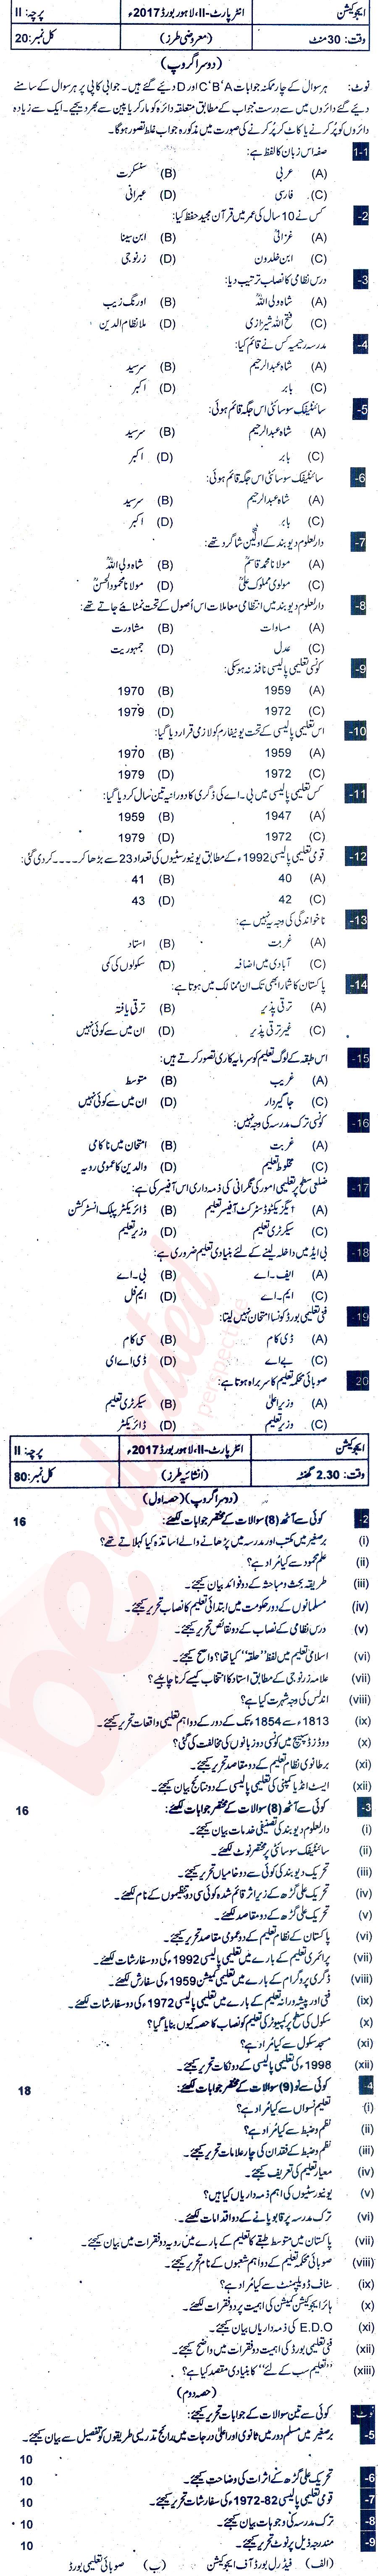 ایجوکیشن انٹر پارٹ-II، لاہور بورڈ 2017ء پرچہ: II
وقت: 30 منٹ (معروضی طرز) کل نمبر: 20
(دوسرا گروپ)
نوٹ: ہر سوال کے چار ممکنہ جوابات C'B'A اور D دیئے گئے ہیں۔ جوابی کاپی پر ہر سوال کے سامنے
دیئے گئے دائروں میں سے درست جواب کے مطابق متعلقہ دائرہ کو مارکر یا پین سے بھر دیجیے۔ ایک سے زیادہ
دائروں کو پُر کرنے یا کاٹ کر پُر کرنے کی صورت میں مذکورہ جواب غلط تصور ہوگا۔
1-1 صفہ اس زبان کا لفظ ہے:
(A) عربی (B) سنسکرت
(C) فارسی (D) عبرانی
-2 کس نے 10 سال کی عمر میں قرآن مجید حفظ کیا:
(A) غزالیؒ (B) ابن سینا
(C) ابن خلدون (D) زرنوجی
-3 درس نظامی کا نصاب ترتیب دیا:
(A) شاہ ولی اللہؒ (B) اورنگ زیب
(C) فتح اللہ شیرازی (D) ملا نظام الدین
-4 مدرسہ رحیمیہ کس نے قائم کیا:
(A) شاہ عبدالرحیم (B) سرسید
(C) بابر (D) اکبر
-5 سائنٹیفک سوسائٹی اس جگہ قائم ہوئی:
(A) شاہ عبدالرحیم (B) سرسید
(C) بابر (D) اکبر
-6 سائنٹیفک سوسائٹی اس جگہ قائم ہوئی:
(A) شاہ عبدالرحیم (B) سرسید
(C) بابر (D) اکبر
-7 دارالعلوم دیوبند کے اولین شاگرد تھے:
(A) مولانا محمد قاسمؒ (B) شاہ ولی اللہؒ
(C) مولوی مملوک علیؒ (D) مولانا محمود الحسنؒ
-8 دارالعلوم دیوبند میں انتظامی معاملات اس اُصول کے تحت نمٹائے جاتے تھے:
(A) مساوات (B) مشاورت
(C) عدل (D) جمہوریت
-9 کونسی تعلیمی پالیسی نافذ نہ ہوسکی:
(A) 1959 (B) 1970
(C) 1972 (D) 1979
-10 اس تعلیمی پالیسی کے تحت یونیفارم کو لازمی قرار دیا گیا:
(A) 1959 (B) 1970
(C) 1972 (D) 1979
-11 کس تعلیمی پالیسی میں بی۔اے کی ڈگری کا دورانیہ تین سال کردیا گیا:
(A) 1947 (B) 1959
(C) 1972 (D) 1979
-12 قومی تعلیمی پالیسی 1992ء کے مطابق یونیورسٹیوں کی تعداد 23 سے بڑھا کر ۔۔۔۔ کردی گئی:
(A) 40 (B) 41
(C) 42 (D) 43
-13 ناخواندگی کی وجہ یہ نہیں ہے:
(A) غربت (B) استاد
(C) آبادی میں اضافہ (D) سکولوں کی کمی
-14 پاکستان کا شمار ابھی تک ان ممالک میں ہوتا ہے:
(A) ترقی پذیر (B) ترقی یافتہ
(C) غیر ترقی پذیر (D) ان میں سے کوئی نہیں
-15 اس طبقہ کے لوگ تعلیم کو سرمایہ کاری تصور کرتے ہیں:
(A) غریب (B) متوسط
(C) جاگیردار (D) ان میں سے کوئی نہیں
-16 کونسی ترک مدرسہ کی وجہ نہیں:
(A) غربت (B) امتحان میں ناکامی
(C) مخلوط تعلیم (D) والدین کا عمومی رویہ
-17 ضلعی سطح پر تعلیمی امور کی نگرانی کی ذمہ داری اس آفیسر کی ہے:
(A) ایگزیکٹو ڈسٹرکٹ آفیسر تعلیم (B) ڈائریکٹر پبلک انسٹرکشن
(C) سیکرٹری تعلیم (D) وزیر تعلیم
-18 بی ایڈ میں داخلہ لینے کے لئے بنیادی تعلیم ضروری ہے:
(A) ایف۔اے (B) بی۔اے
(C) ایم۔اے (D) ایم فل
-19 فنی تعلیمی بورڈ کونسا امتحان نہیں لیتا:
(A) ڈی کام (B) سی کام
(C) بی اے (D) ڈی اے ای
-20 صوبائی محکمہ تعلیم کا سربراہ ہوتا ہے:
(A) وزیراعلیٰ (B) سیکرٹری تعلیم
(C) وزیر تعلیم (D) ڈائریکٹر
ایجوکیشن انٹر پارٹ-II، لاہور بورڈ 2017ء پرچہ: II
وقت: 2.30 گھنٹہ (انشائیہ طرز) کل نمبر: 80
(دوسرا گروپ) (حصہ اول)
-2 کوئی سے آٹھ (8) سوالات کے مختصر جوابات لکھئے: 16
(i) برصغیر میں مکتب اور مدرسہ میں پڑھانے والے اساتذہ کیا کہلاتے تھے؟
(ii) علم محمود سے کیا مُراد ہے؟
(iii) طریقہ بحث و مباحثہ کے دو فوائد بیان کیجئے۔
(iv) مسلمانوں کے دور حکومت میں ابتدائی تعلیم کا نصاب تحریر کیجئے۔
(v) درس نظامی کے نصاب کے دو نقائص تحریر کیجئے۔
(vi) اسلامی تعلیم میں لفظ "حلقہ" کیا تھا؟ واضح کیجئے۔
(vii) علامہ زرنوجی کے مطابق استاد کا انتخاب کیسے کرنا چاہیئے؟
(viii) اندلس کی وجہ شہرت کیا ہے؟
(ix) 1813ء سے 1854ء تک کے دور کے دو اہم تعلیمی واقعات تحریر کیجئے۔
(x) ووڈز ڈسپیچ میں کونسی دو زبانوں کی مخالفت کی گئی؟
(xi) برطانوی نظام تعلیم کے دو مقاصد تحریر کیجئے۔
(xii) ایسٹ انڈیا کمپنی کی تعلیمی پالیسی کے دو نتائج بیان کیجئے۔
-3 کوئی سے آٹھ (8) سوالات کے مختصر جوابات لکھئے: 16
(i) دارالعلوم دیوبند کی تصنیفی خدمات بیان کیجئے۔
(ii) سائنٹیفک سوسائٹی پر مختصر نوٹ لکھئے۔
(iii) تحریک دیوبند کی کوئی سے دو خامیاں تحریر کیجئے۔
(iv) تحریک علی گڑھ کے زیراثر قائم شدہ کوئی سی دو تنظیموں کے نام لکھئے۔
(v) تحریک علی گڑھ کے دو مقاصد لکھئے۔
(vi) پاکستان کے نظام تعلیم کے دو عمومی مقاصد تحریر کیجئے۔
(vii) پرائمری تعلیم کے بارے میں تعلیمی پالیسی 1992ء کی دو سفارشات لکھئے۔
(viii) ڈگری پروگرام کے بارے میں تعلیمی کمیشن 1959ء کی سفارش لکھئے۔
(ix) فنی اور پیشہ ورانہ تعلیم کے بارے میں تعلیمی پالیسی 1972ء کی دو سفارشات لکھئے۔
(x) سکول کی سطح پر کمپیوٹر کی تعلیم کو نصاب کا حصہ کیوں بنایا گیا؟
(xi) مسجد سکول سے کیا مُراد ہے؟
(xii) 1998ء کی تعلیمی پالیسی کے دو نکات تحریر کیجئے۔
-4 کوئی سے نو (9) سوالات کے مختصر جوابات لکھئے: 18
(i) تعلیم نسواں سے کیا مُراد ہے؟
(ii) نظم و ضبط سے کیا مُراد ہے؟
(iii) نظم و ضبط کے فقدان کی چار علامات تحریر کیجئے۔
(iv) معیار تعلیم کی تعریف کیجئے۔
(v) یونیورسٹیوں کی اہم ذمہ داریاں کیا ہیں؟
(vi) ترک مدرسہ پر قابو پانے کے دو اقدامات لکھئے۔
(vii) پاکستان میں متوسط طبقے کا تعلیم کے بارے میں رویہ دو فقرات میں بیان کیجئے۔
(viii) صوبائی محکمہ تعلیم کے دو اہم شعبوں کے نام تحریر کیجئے۔
(ix) سٹاف ڈویلپمنٹ سے کیا مُراد ہے؟
(x) ہائر ایجوکیشن کمیشن کی اہمیت پر دو فقرات لکھئے۔
(xi) E.D.O کی ذمہ داریاں بیان کیجئے۔
(xii) فنی تعلیمی بورڈ کی اہمیت دو فقرات میں واضح کیجئے۔
(xiii) "تعلیم سب کے لئے" کا بنیادی مقصد کیا ہے؟
(حصہ دوم)
نوٹ: کوئی سے تین سوالات کے جوابات تحریر کیجئے:
-5 برصغیر میں مسلم دور میں ثانوی اور اعلیٰ درجات میں رائج تدریسی طریقوں کو تفصیل سے بیان کیجئے۔
10
-6 تحریک علی گڑھ کے اثرات کی وضاحت کیجئے۔ 10
-7 قومی تعلیمی پالیسی 82-1972ء کی سفارشات تحریر کیجئے۔ 10
-8 ترک مدرسہ کی وجوہات بیان کیجئے۔ 10
-9 مندرجہ ذیل پر نوٹ تحریر کیجئے۔ 10
(الف) فیڈرل بورڈ آف ایجوکیشن (ب) صوبائی تعلیمی بورڈ